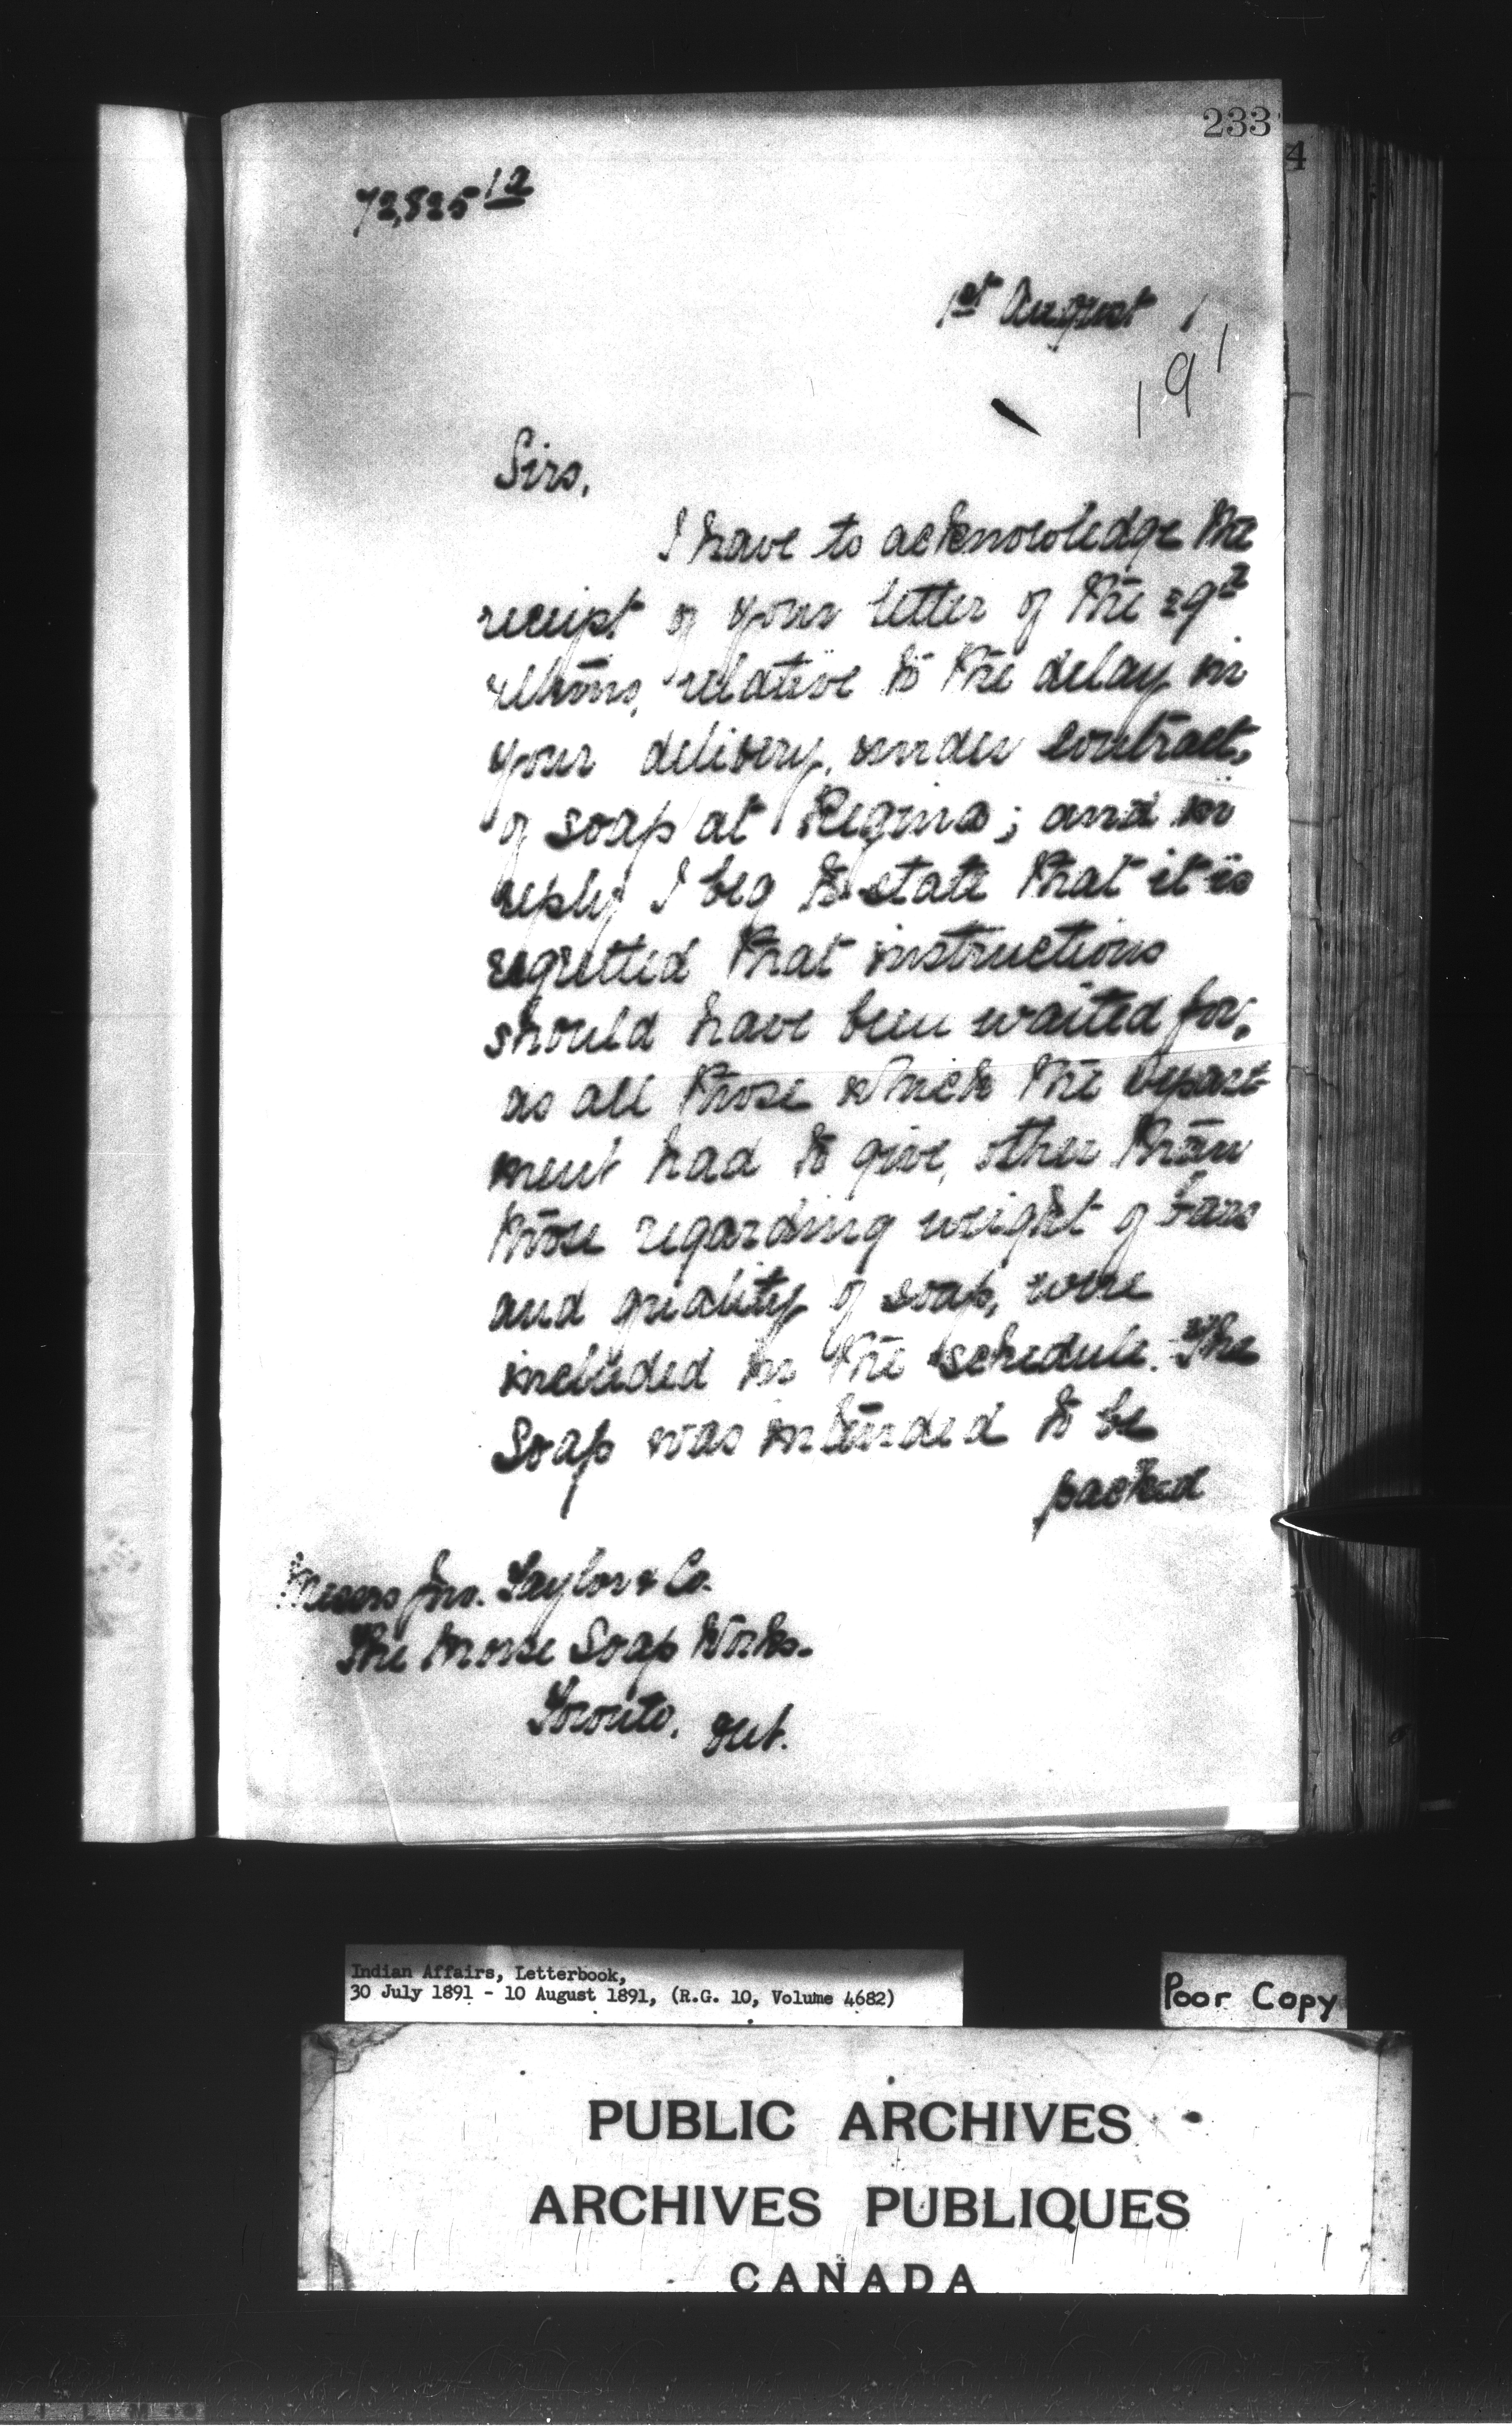 233
4
72,825 12
1st August 1
191
Sirs,
I have to acknowledge the
receipt of your letter of the 29th
ultimo, relative to the delay in
your delivery, under contract,
of soap at Regina; and in
reply I beg to state that it is
regretted that instructions
should have been waited for,
as all those which the Depart-
ment had to give, other than
those regarding weight of bars
and quality of soap, were
included in the schedule. The
Soap was intended to be
packed
Messrs Jno. Taylor & Co.
The Morse Soap Works.
Toronto, Ont.
Indian Affairs, Letterbook,
30 July 1891 - 10 August 1891, (R.G. 10, Volume 4682)
Poor Copy
PUBLIC ARCHIVES
ARCHIVES PUBLIQUES
CANADA